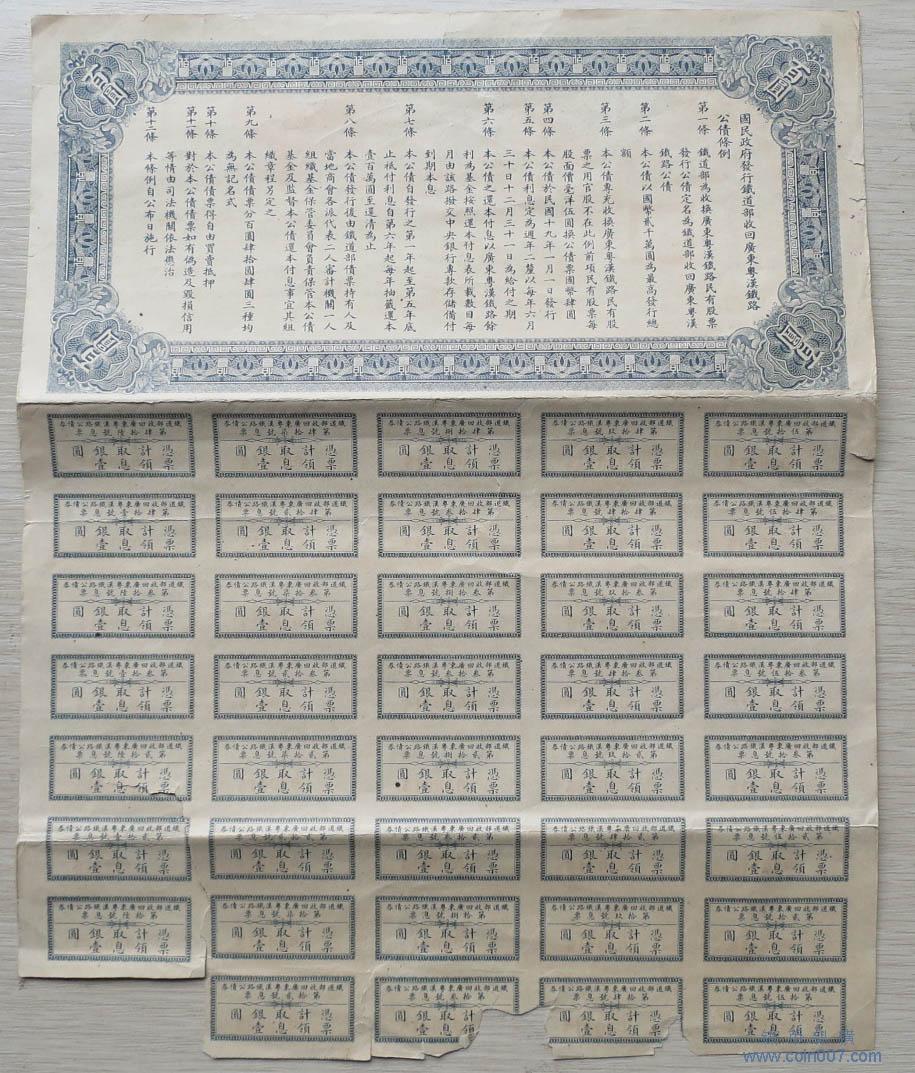 國民政府發行鐵道部收回廣東粵漢鐵路
公債條例
第一條 鐵道部為收換廣東粵漢鐵路民有股票
發行公債定名為鐵道部收回廣東粵漢
鐵路公債
第二條 本公債以國幣貳千萬圓為最高發行總
額
第三條 本公債專充收換廣東粵漢鐵路民有股
票之用官股不在此例前項民有股票每
股面價毫洋伍圓換公債票國幣肆圓
第四條 本公債於民國十九年一月一日發行
第五條 本公債利息定為週年二釐以每年六月
三十日十二月三十一為給付之期
第六條 本公債之還本付息以廣東粵漢鐵路餘
利為基金按照還本付息表所載數目每
月由該路撥交中央銀行專款存儲備付
到期本息
第七條 本公債自發行之第一年起至第五年底
止祇付利息自第六年起每年抽籤還本
壹百萬圓至還清為止
第八條 本公債發行後由鐵道部債票持有人及
當地商會各派代表二人審計機關一人
組織基金保管委員會負責保管本公債
基金及監督本公債還本付息事宜其組
織章程另定之
第九條 本公債債票分百圓肆拾圓肆圓三種均
為無記名式
第十條 本公債債票得自由買賣抵押
第十一條 對於本公債債票如有偽造及毀損信用
等情由司法機關依法懲治
第十二條 本條例自公布日施行
百圓
百圓
百圓
百圓
鐵道部收回廣東粵漢鐵路公債券
第伍拾號息票
憑票計領取息銀壹圓
鐵道部收回廣東粵漢鐵路公債券
第肆拾玖號息票
憑票計領取息銀壹圓
鐵道部收回廣東粵漢鐵路公債券
第肆拾捌號息票
憑票計領取息銀壹圓
鐵道部收回廣東粵漢鐵路公債券
第肆拾柒號息票
憑票計領取息銀壹圓
鐵道部收回廣東粵漢鐵路公債券
第肆拾陸號息票
憑票計領取息銀壹圓
鐵道部收回廣東粵漢鐵路公債券
第肆拾伍號息票
憑票計領取息銀壹圓
鐵道部收回廣東粵漢鐵路公債券
第肆拾肆號息票
憑票計領取息銀壹圓
鐵道部收回廣東粵漢鐵路公債券
第肆拾叁號息票
憑票計領取息銀壹圓
鐵道部收回廣東粵漢鐵路公債券
第肆拾貳號息票
憑票計領取息銀壹圓
鐵道部收回廣東粵漢鐵路公債券
第肆拾壹號息票
憑票計領取息銀壹圓
鐵道部收回廣東粵漢鐵路公債券
第肆拾號息票
憑票計領取息銀壹圓
鐵道部收回廣東粵漢鐵路公債券
第叁拾玖號息票
憑票計領取息銀壹圓
鐵道部收回廣東粵漢鐵路公債券
第叁拾捌號息票
憑票計領取息銀壹圓
鐵道部收回廣東粵漢鐵路公債券
第叁拾柒號息票
憑票計領取息銀壹圓
鐵道部收回廣東粵漢鐵路公債券
第叁拾陸號息票
憑票計領取息銀壹圓
鐵道部收回廣東粵漢鐵路公債券
第叁拾伍號息票
憑票計領取息銀壹圓
鐵道部收回廣東粵漢鐵路公債券
第叁拾肆號息票
憑票計領取息銀壹圓
鐵道部收回廣東粵漢鐵路公債券
第叁拾叁號息票
憑票計領取息銀壹圓
鐵道部收回廣東粵漢鐵路公債券
第叁拾貳號息票
憑票計領取息銀壹圓
鐵道部收回廣東粵漢鐵路公債券
第叁拾壹號息票
憑票計領取息銀壹圓
鐵道部收回廣東粵漢鐵路公債券
第叁拾號息票
憑票計領取息銀壹圓
鐵道部收回廣東粵漢鐵路公債券
第貳拾玖號息票
憑票計領取息銀壹圓
鐵道部收回廣東粵漢鐵路公債券
第貳拾捌號息票
憑票計領取息銀壹圓
鐵道部收回廣東粵漢鐵路公債券
第貳拾柒號息票
憑票計領取息銀壹圓
鐵道部收回廣東粵漢鐵路公債券
第貳拾陸號息票
憑票計領取息銀壹圓
鐵道部收回廣東粵漢鐵路公債券
第貳拾伍號息票
憑票計領取息銀壹圓
鐵道部收回廣東粵漢鐵路公債券
第貳拾肆號息票
憑票計領取息銀壹圓
鐵道部收回廣東粵漢鐵路公債券
第貳拾叁號息票
憑票計領取息銀壹圓
鐵道部收回廣東粵漢鐵路公債券
第貳拾貳號息票
憑票計領取息銀壹圓
鐵道部收回廣東粵漢鐵路公債券
第貳拾壹號息票
憑票計領取息銀壹圓
鐵道部收回廣東粵漢鐵路公債券
第貳拾號息票
憑票計領取息銀壹圓
鐵道部收回廣東粵漢鐵路公債券
第拾玖號息票
憑票計領取息銀壹圓
鐵道部收回廣東粵漢鐵路公債券
第拾捌號息票
憑票計領取息銀壹圓
鐵道部收回廣東粵漢鐵路公債券
第拾柒號息票
憑票計領取息銀壹圓
鐵道部收回廣東粵漢鐵路公債券
第拾陸號息票
憑票計領取息銀壹圓
鐵道部收回廣東粵漢鐵路公債券
第拾伍號息票
憑票計領取息銀壹圓
鐵道部收回廣東粵漢鐵路公債券
第拾肆號息票
憑票計領取息銀壹圓
鐵道部收回廣東粵漢鐵路公債券
第拾叁號息票
憑票計領取息銀壹
鐵道部收回廣東粵漢鐵路公債券
第拾貳號息票
憑票計領取息銀壹圓
www.coin007.com